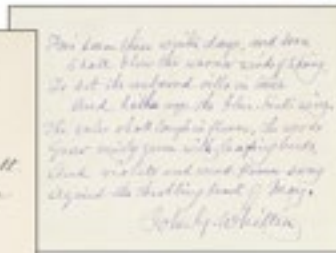 days, and soon
Shall blow the warm winds of Spring
To set the unbound rills in tune
And hither urge the blue-bird's wing.
The vales shall laugh in flowers, the woods
Grow misty green with leafing buds,
And violets and wind-flowers sway
Against the throbbing heart of May.
John G. Whittier